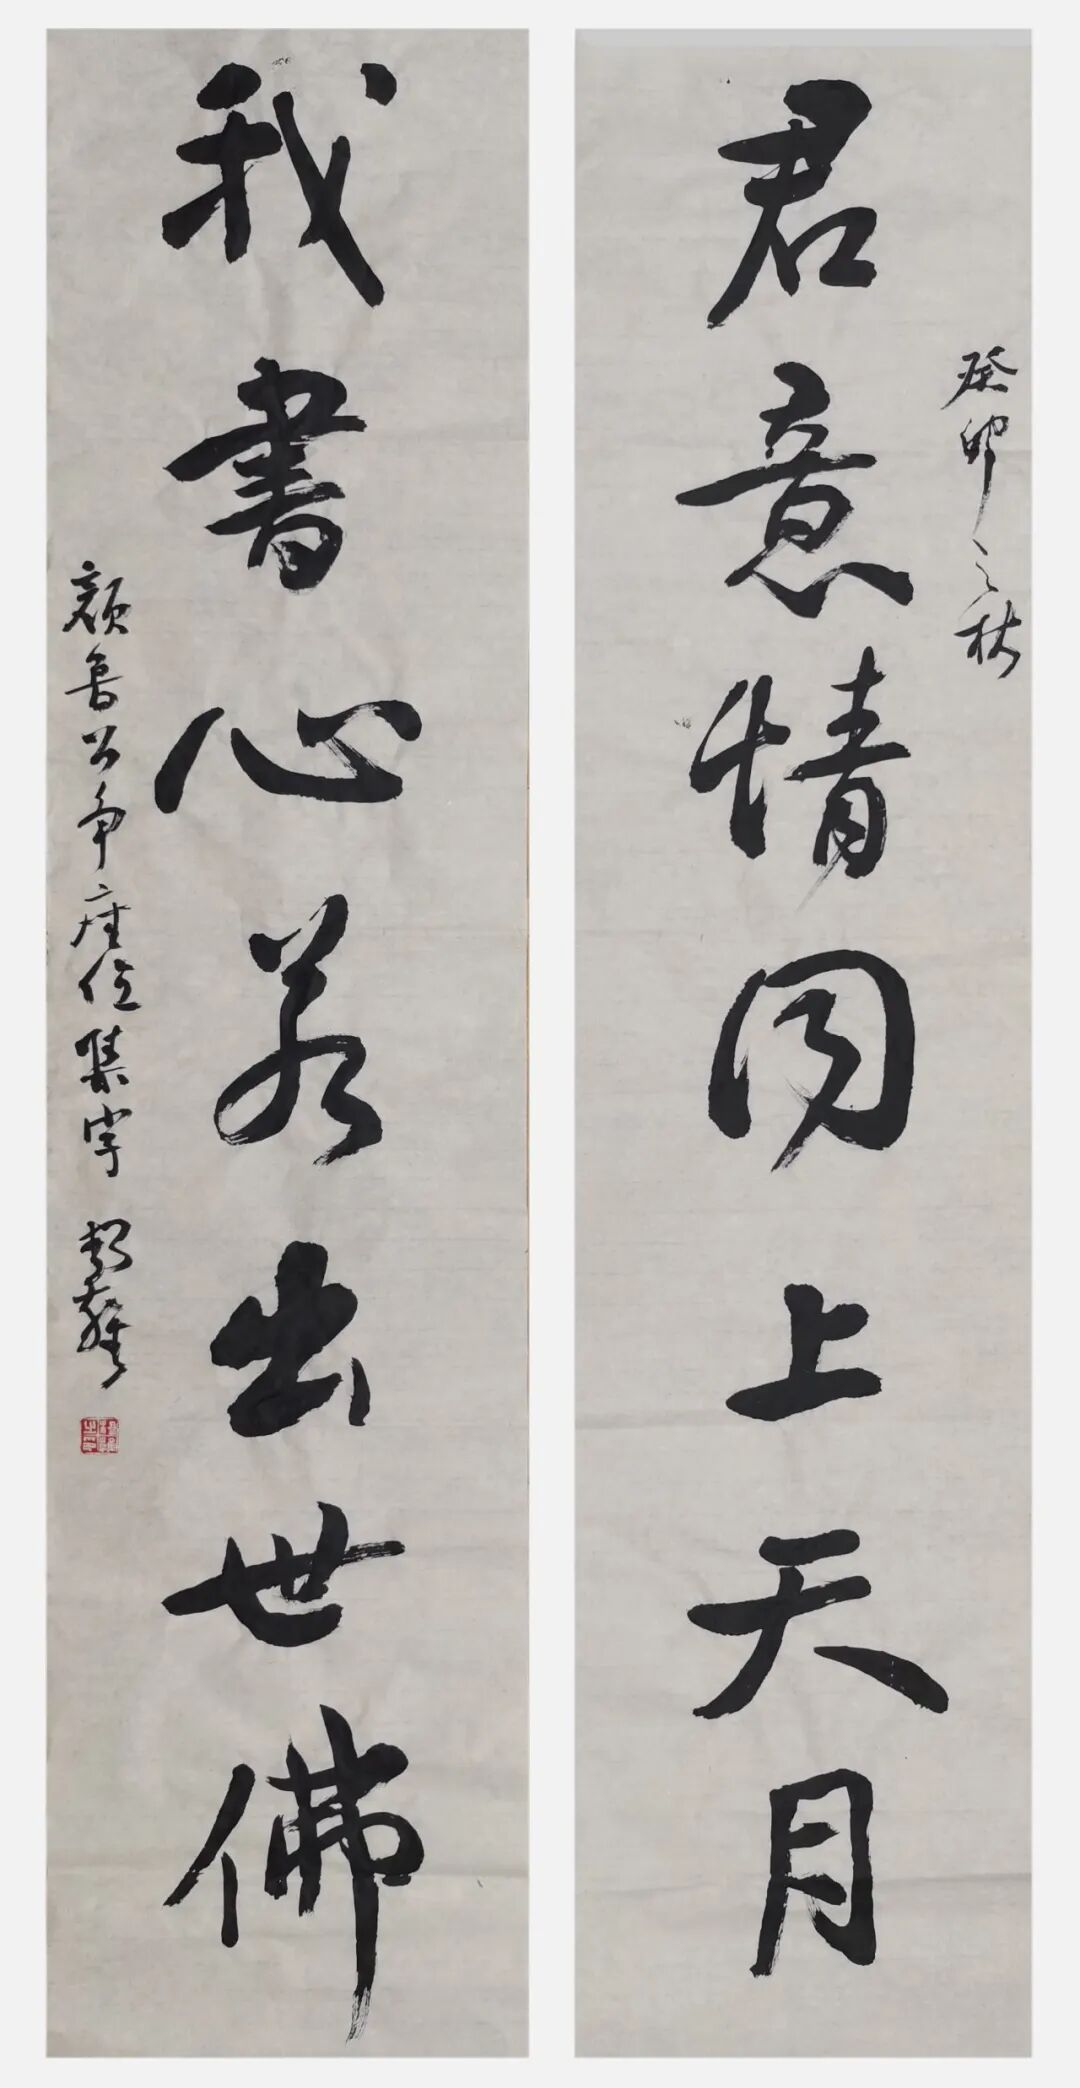 癸卯之秋
君意情同上天月
我書心若出世佛
顔魯公争座位集字